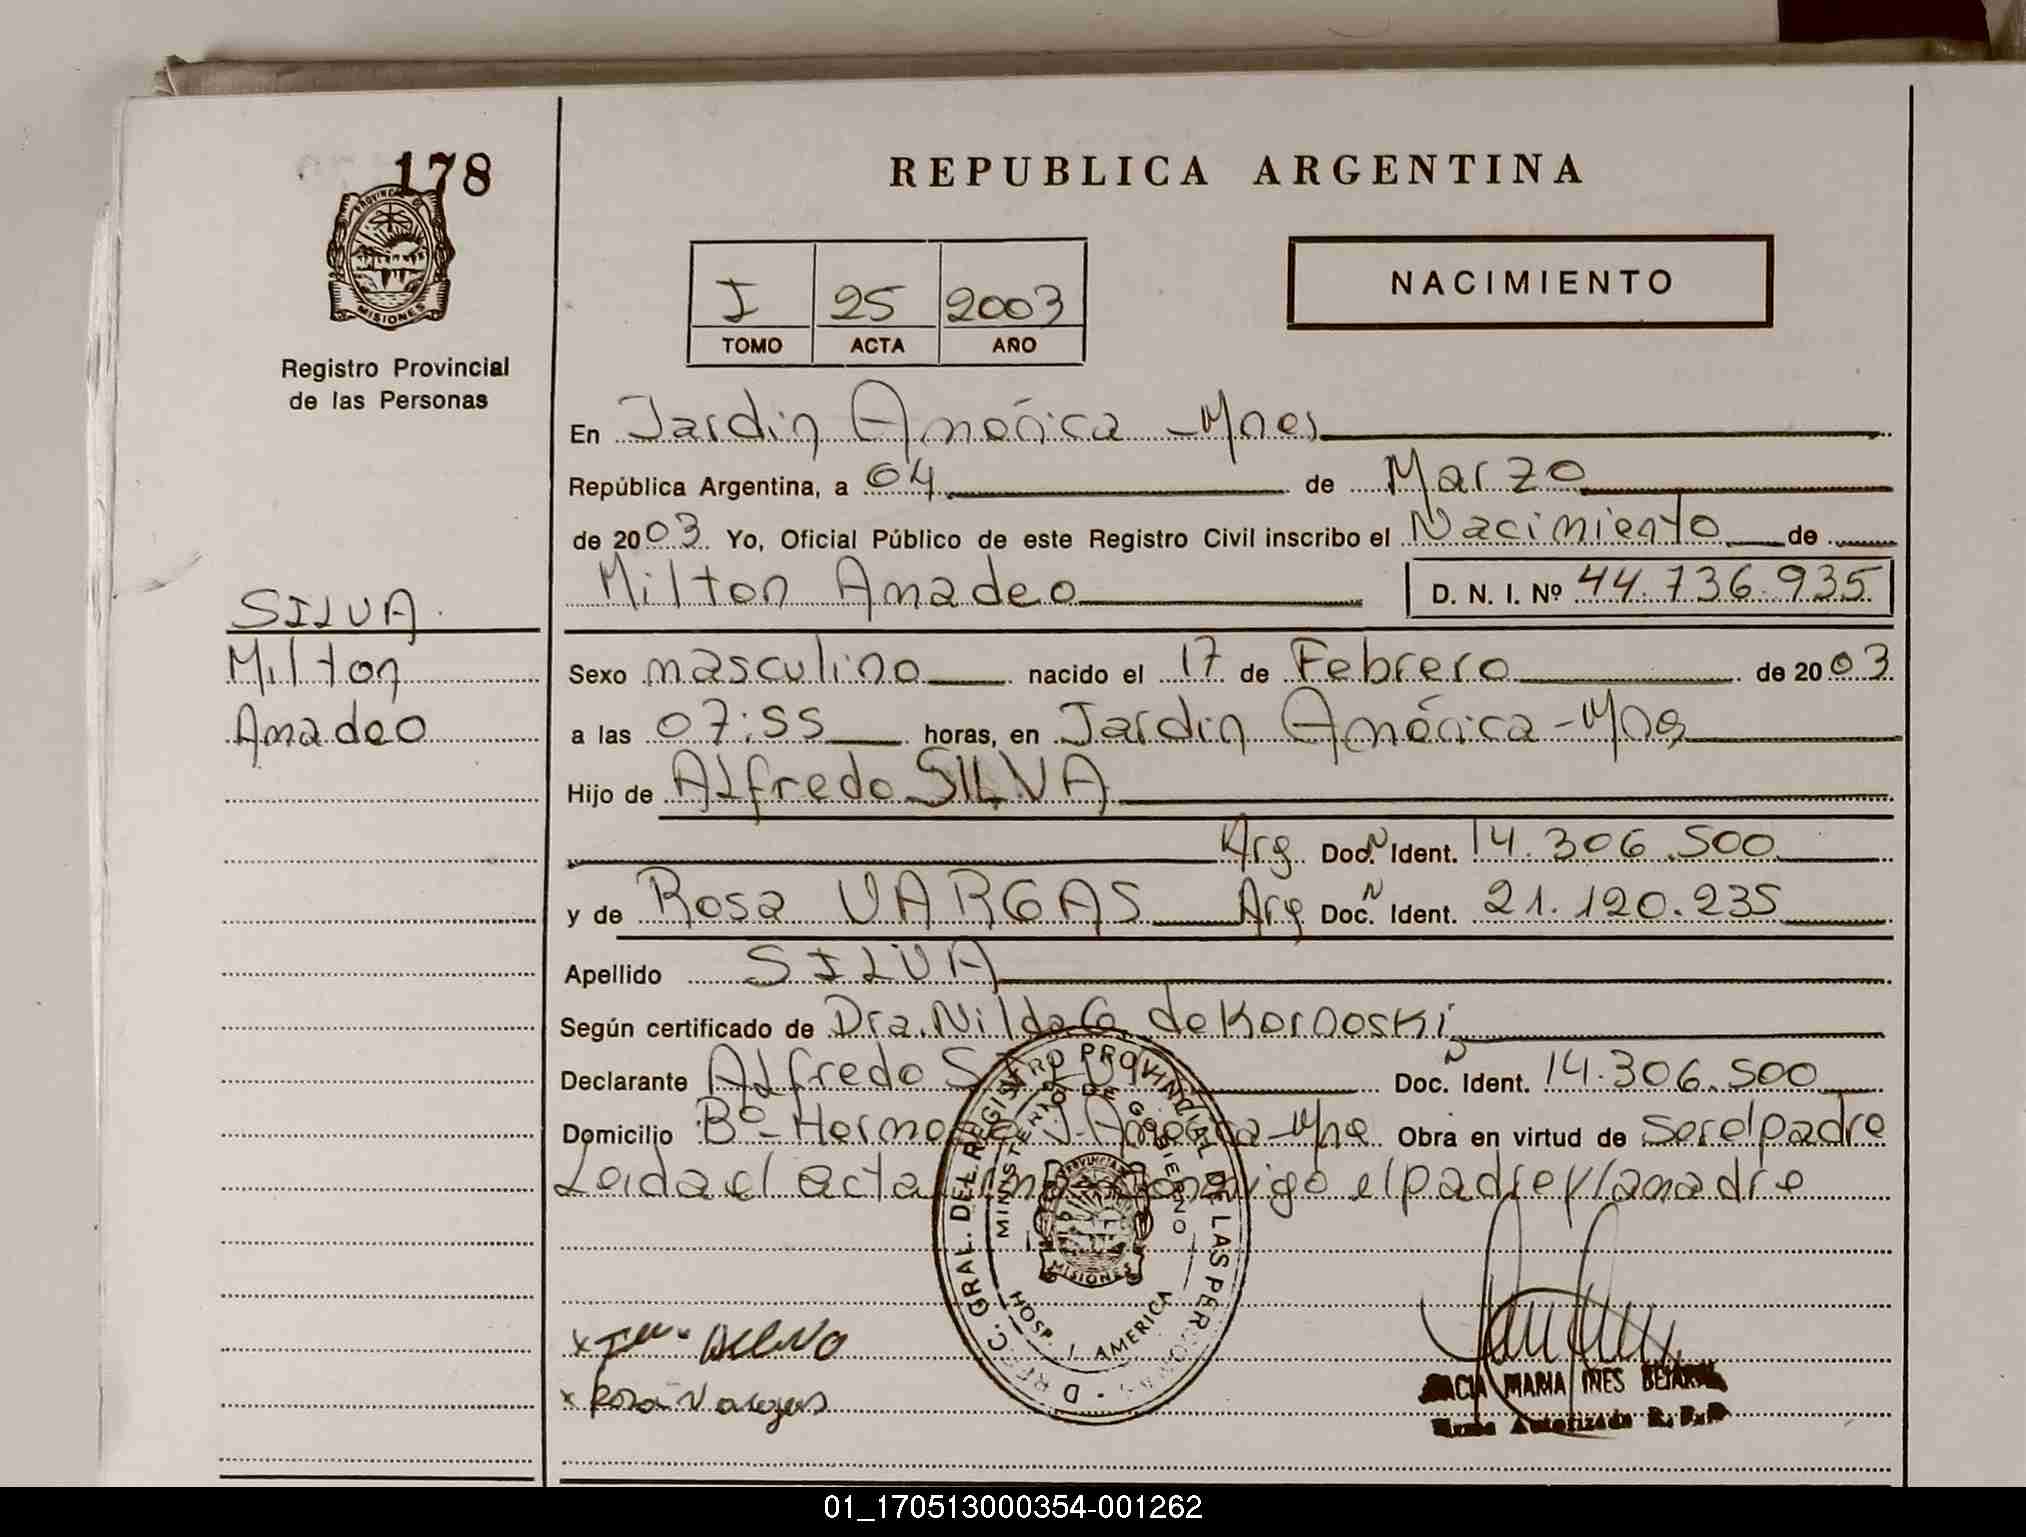 178
PROVINCIA DE
MISIONES
Registro Provincial
de las Personas
SILVA
Milton
Amadeo
REPUBLICA ARGENTINA
I 25 2003
TOMO ACTA AÑO
NACIMIENTO
En Jardin América - Mnes
República Argentina, a 04 de Marzo
de 2003 Yo, Oficial Público de este Registro Civil inscribo el Nacimiento de
Milton Amadeo D. N. I. Nº 44.736.935
Sexo masculino nacido el 17 de Febrero de 2003
a las 07:55 horas, en Jardin América - Mnes
Hijo de Alfredo SILVA
Arg Doc. N Ident. 14.306.500
y de Rosa VARGAS Arg Doc. N Ident. 21.120.235
Apellido SILVA
Según certificado de Dra. Nilda C de Kornoski
Declarante Alfredo Doc. N Ident. 14.306.500
Domicilio Bº - Hermoso J. América - Mne Obra en virtud de Ser el padre
Leida el acta conmigo el padre y la madre
DIREC. GRAL. DEL REGISTRO PROVINCIAL DE LAS PERSONAS
MINISTERIO DE GOBIERNO
PROVINCIA
MISIONES
HOSP. J. AMERICA
x
x Rosa Vargas
MARIA INES
Firma Autorizada R.P.P
01_170513000354-001262